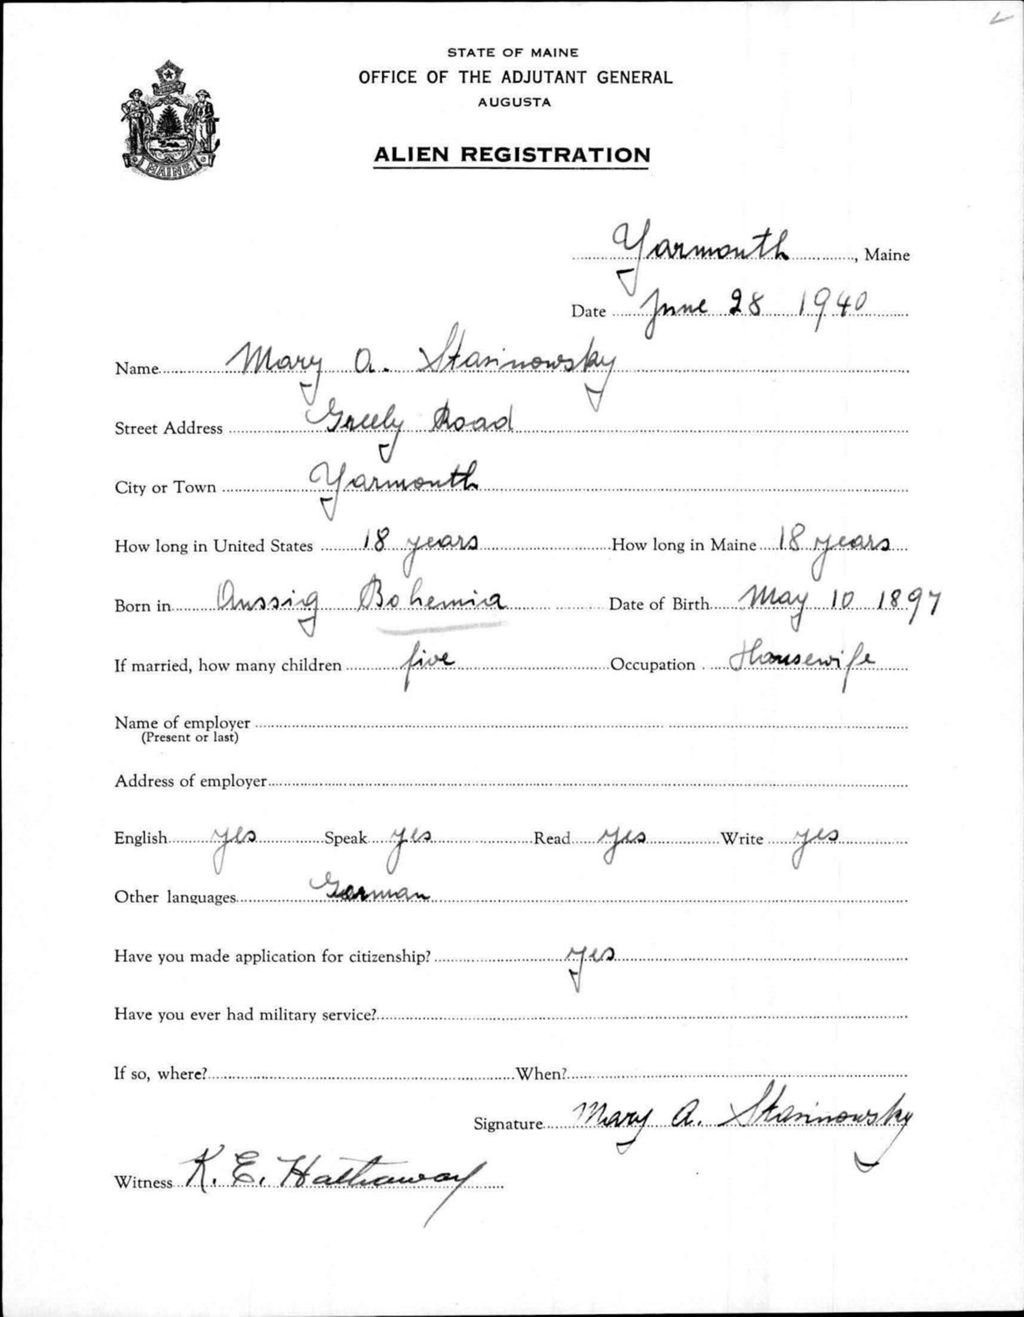 STATE OF MAINE
OFFICE OF THE ADJUTANT GENERAL
AUGUSTA
ALIEN REGISTRATION
MAINE
Yarmouth, Maine
Date June 28 1940
Name Mary A. Stasinowsky
Street Address Greely Road
City or Town Yarmouth
How long in United States 18 years How long in Maine 18 years
Born in Aussig Bohemia Date of Birth May 10 1897
If married, how many children five Occupation Housewife
Name of employer
(Present or last)
Address of employer
English yes Speak yes Read yes Write yes
Other languages German
Have you made application for citizenship? yes
Have you ever had military service?
If so, where? When?
Signature Mary A. Stasinowsky
Witness K. E. Hathaway